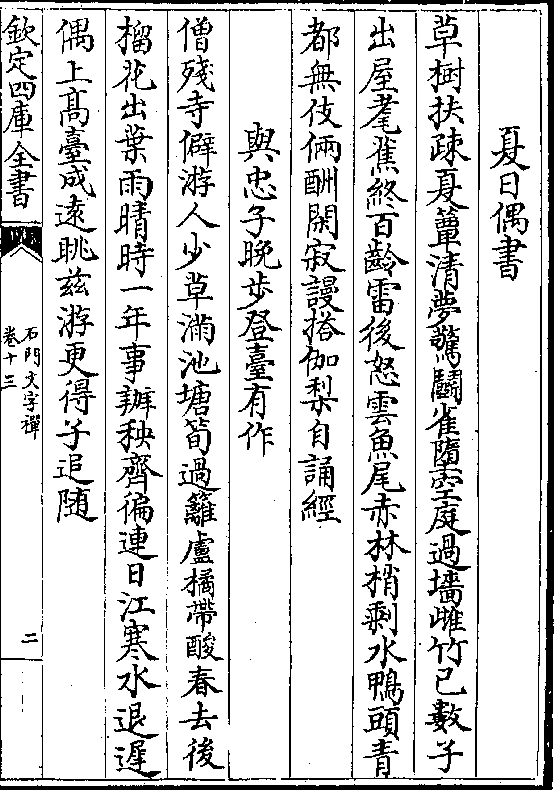 夏日偶書
草樹扶疎夏簟清夢驚鬭雀墮空庭過墻雌竹已數子
出屋耄蕉終百齡雷後怒雲魚尾赤林梢剩水鴨頭青
都無伎倆酬閑寂謾搭伽梨自誦經
與忠子晚步登臺有作
僧殘寺僻游人少草滿池塘筍過籬盧橘帶酸春去後
榴花出葉雨晴時一年事辦秧齊徧連日江寒水退遲
偶上髙臺成遠眺兹游更得子追随
欽定四庫全書
石門文字禪
卷十三
二